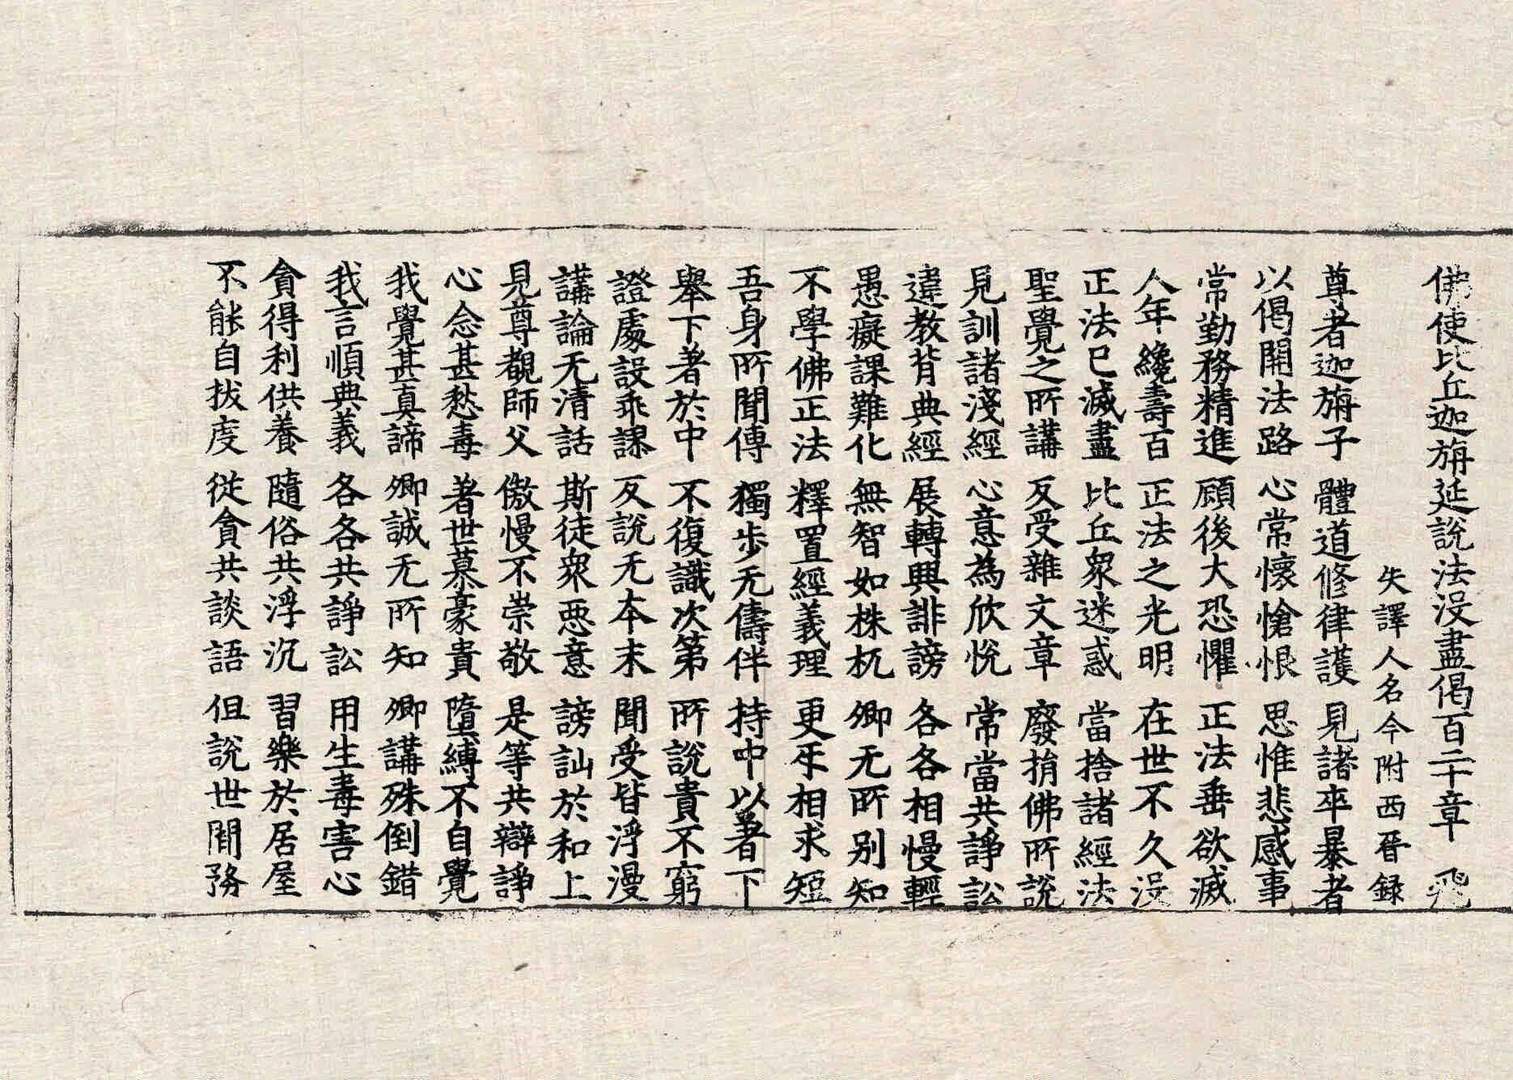 佛使比丘迦旃延說法沒盡偈百二十章 飛
失譯人名今附西晉録
尊者迦旃子 體道修律護 見諸卒暴者
以偈開法路 心常懷愴恨 思惟悲感事
常勤務精進 顧後大恐懼 正法垂欲滅
人年纔壽百 正法之光明 在世不久沒
正法已滅盡 比丘衆迷惑 當捨諸經法
聖覺之所講 反受雜文章 廢捐佛所說
見訓諸淺經 心意為欣悅 常當共諍訟
違教背典經 展轉興誹謗 各各相慢輕
愚癡課難化 無智如株杌 卿无所别知
不學佛正法 釋置經義理 更牙相求短
吾身所聞傳 獨步无儔伴 持中以著下
舉下著於中 不復識次第 所說貴不窮
證處設乖謬 反說无本末 聞受皆浮漫
講論无清話 斯徒衆惡意 謗訕於和上
見尊觀師父 傲慢不崇敬 是等共辯諍
心念甚愁毒 著世慕豪貴 墮縛不自覺
我覺甚真諦 卿誠无所知 卿講殊倒錯
我言順典義 各各共諍訟 用生毒害心
貪得利供養 隨俗共浮沉 習樂於居屋
不能自拔度 從貪共談語 但說世間務